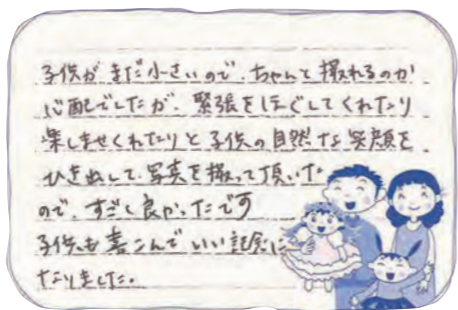 子供がまだ小さいので、ちゃんと撮れるのか
心配でしたが、緊張をほぐしてくれたり
楽しませくれたりと子供の自然な笑顔を
ひき出して写真を撮って頂いた
ので、すごく良かったです
子供も喜こんでいい記念に
なりました。